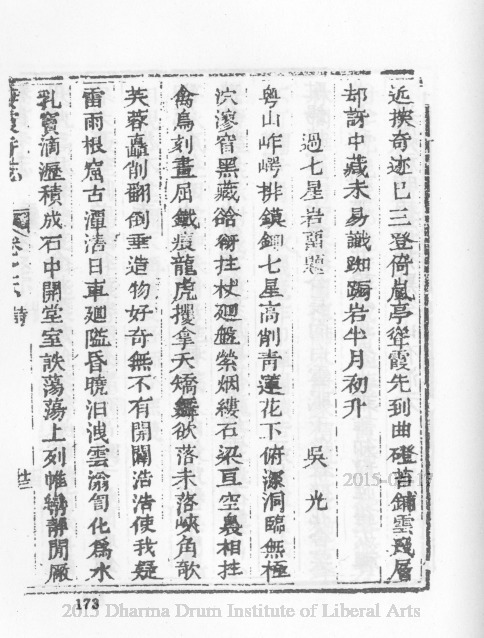 近挾奇迹已三登倚嵐亭聳霞先到曲磴苔鋪雲踐層
却訝中藏未易識踟躕岩半月初升
過七星岩留題 吳光
粵山岝崿排鎮鈿七星高削青蓮花下俯深洞臨無極
泬漻窅黑藏谽谺拄杖廻盤縈烟縷石梁亘空裊相拄
禽鳥刻畫屈鐵痕龍虎攫拿天矯舞欲落未落峽角欹
芙蓉矗削翻倒垂造物好奇無不有開闢浩浩使我疑
雷雨根窟古潭淸日車廻隘昏曉汩洩雲滃訇化爲水
乳竇滴瀝積成石中開堂室詄蕩蕩上列帷巒靜閒厰
卷之六 詩
173
2015-04-17
2015 Dharma Drum Institute of Liberal Arts